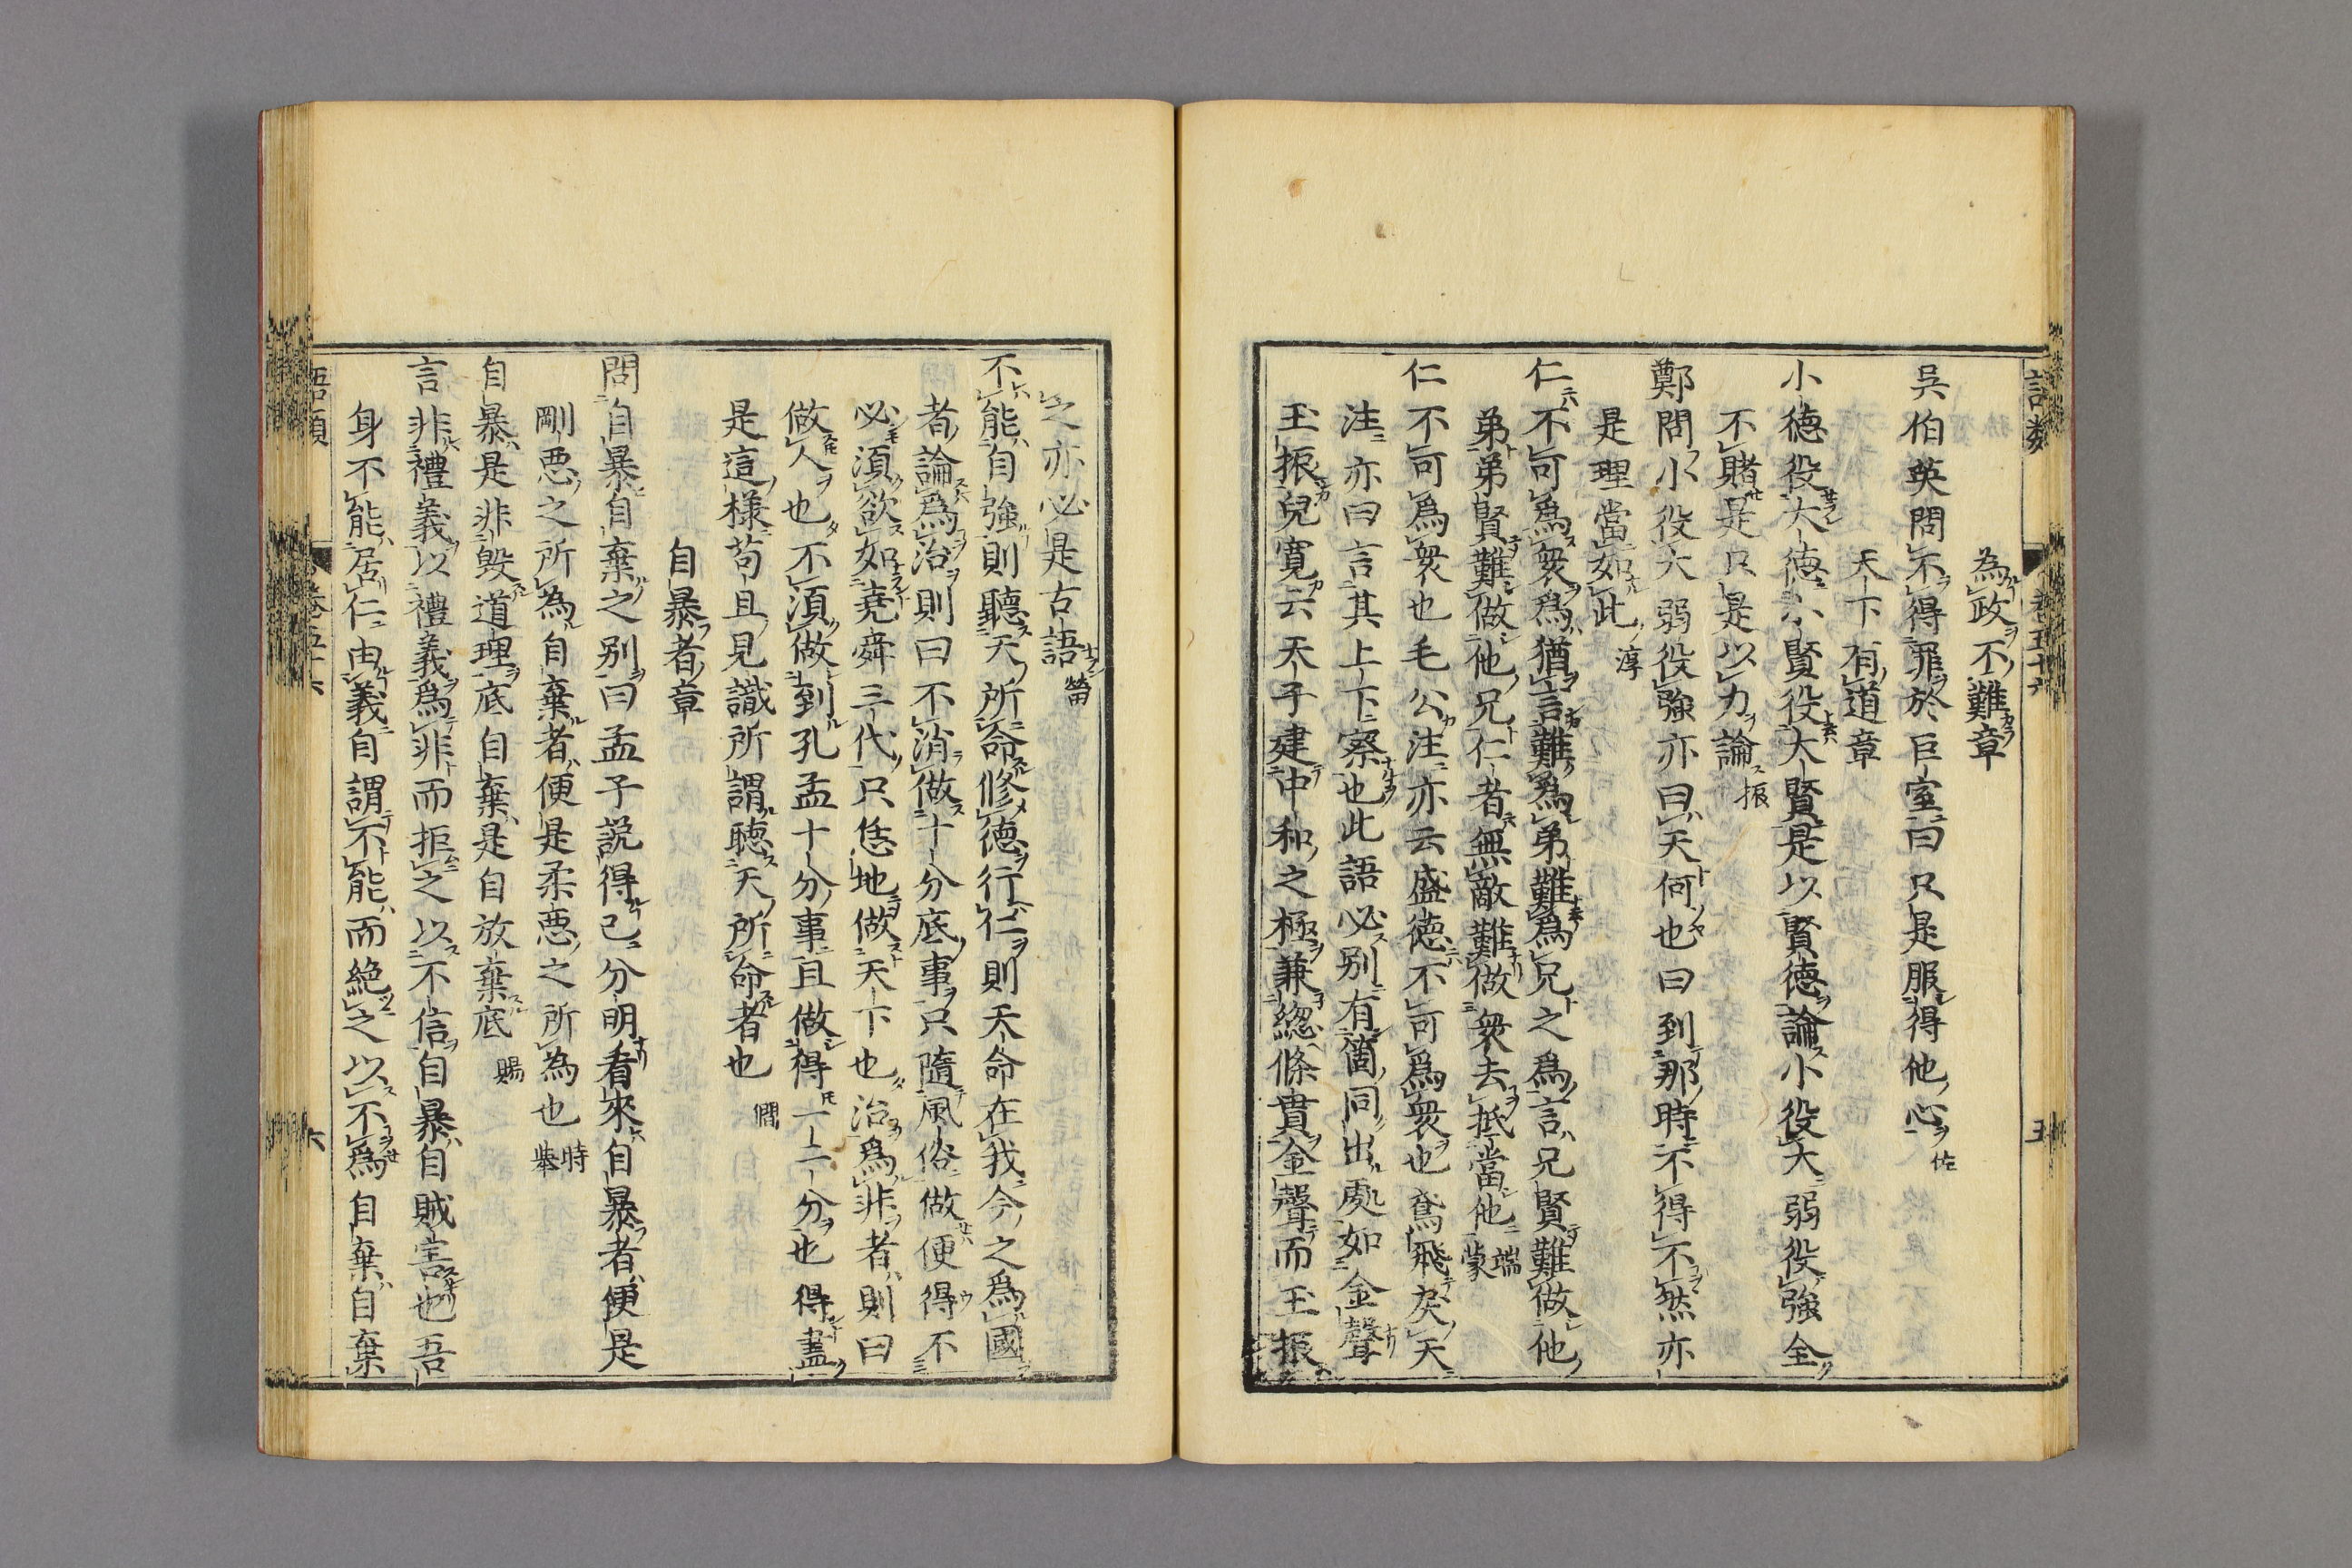 為政不難章
吳伯英問不得罪於巨室曰只是服得他心 佐
天下有道章
小德役大德小賢役大賢是以賢德論小役大弱役強全
不賭是只是以力論 振
鄭問小役大弱役強亦曰天何也曰到那時不得不然亦
是理當如此 淳
仁不可為衆為猶言難為弟難為兄之為言兄賢難做他
弟弟賢難做他兄仁者無敵難做衆去抵當他 端蒙
仁不可為衆也毛公注亦云盛德不可為衆也鳶飛戾天
注亦曰言其上下察也此語必別有箇同出處如金聲
玉振兒寬云天子建中和之極兼總條貫金聲而玉振
之亦必是古語 㽦
不能自強則聽天所命修德行仁則天命在我今之為國
者論為治則曰不消做十分底事只隨風俗做便得不
必須欲如堯舜三代只恁地做天下也治為非者則曰
做人也不須做到孔孟十分事且做得一二分也得盡
是這樣苟且見識所謂聽天所命者也 僩
自暴者章
問自暴自棄之別曰孟子說得已分明看來自暴者便是
剛惡之所為自棄者便是柔惡之所為也 時舉
自暴是非毀道理底自棄是自放棄底 賜
言非禮義以禮義為非而拒之以不信自暴自賊害也吾
身不能居仁由義自謂不能而絕之以不為自棄自棄